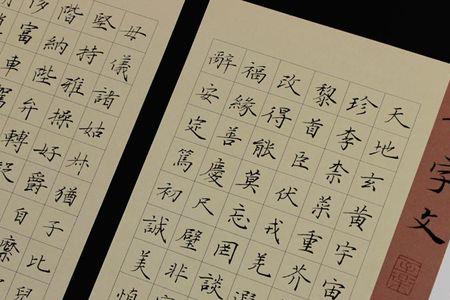 字文
天地玄黃宇宙
珍李柰菜重芥
黎首臣伏戎羌
改得能莫忘罔談
福緣善慶尺璧非
辭安定篤初誠美慎
母儀諸姑猶子比兒
堅持雅操好爵自縻
階納陛弁轉疑
侈富車駕